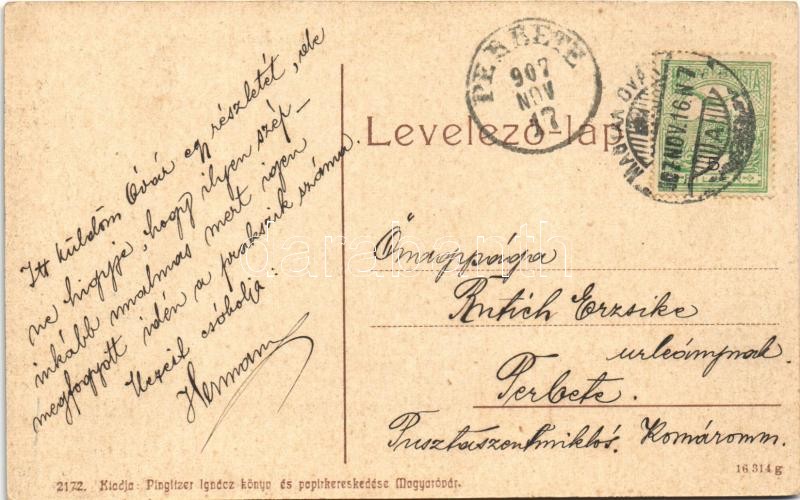 Itt küldöm Óvár egy részletét, de
ne higyje, hogy ilyen szép –
inkább unalmas mert igen
megfogyott idén a prakszik száma.
Kezeit csókolja:
Hermann
2172. Kiadja: Pingitzer Ignácz könyv és papirkereskedése Magyaróvár.
PERBETE
907
NOV
17
MAGYAR ÓVÁR
907 NOV. 16. N 7
Levelező-lap
Őnagysága
Erzsike
urleánynak
Perbete.
Pusztaszentmiklós. Komáromm.
16.314 g
darabanth